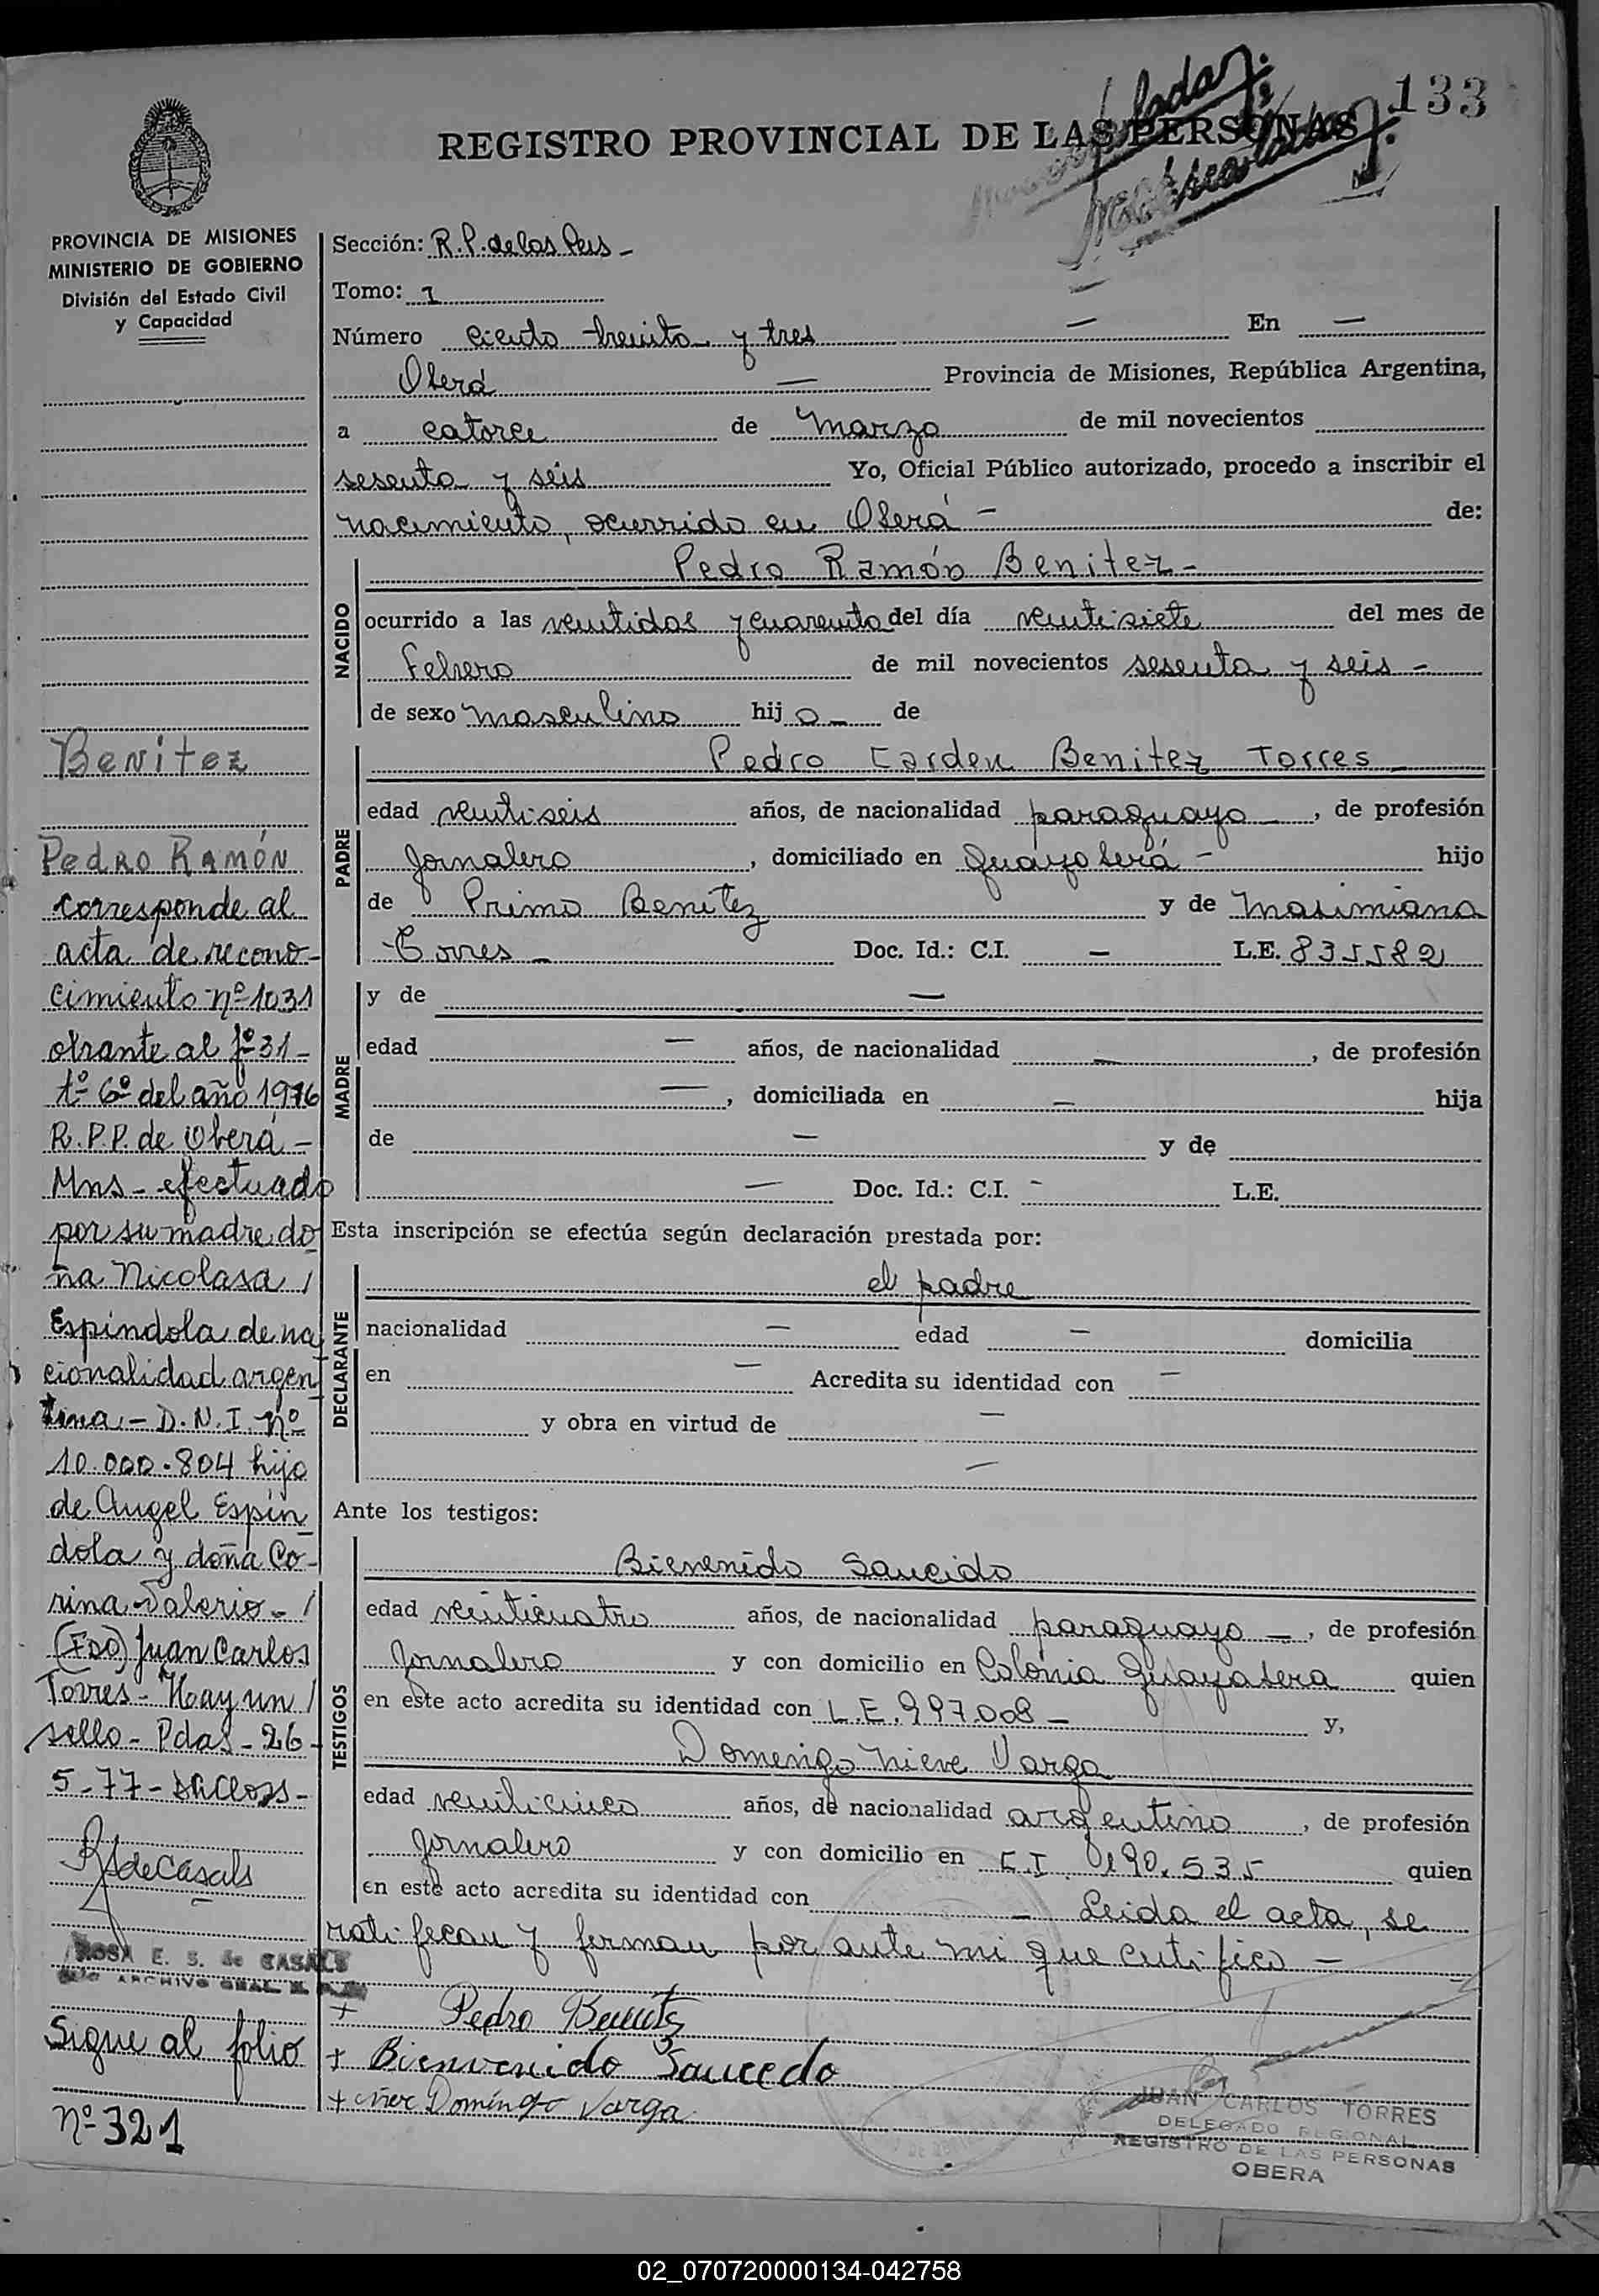 133
REGISTRO PROVINCIAL DE LAS PERSONAS
PROVINCIA DE MISIONES
MINISTERIO DE GOBIERNO
División del Estado Civil
y Capacidad
Sección: R.P. de las Pers -
Tomo: 1
Número ciento treinta y tres — En —
Oberá — Provincia de Misiones, República Argentina,
a catorce de Marzo de mil novecientos
sesenta y seis Yo, Oficial Público autorizado, procedo a inscribir el
nacimiento, ocurrido en Oberá - de:
NACIDO
Pedro Ramón Benitez -
ocurrido a las veintidos y cuarenta del día veintisiete del mes de
Febrero de mil novecientos sesenta y seis -
de sexo masculino hijo - de
PADRE
Pedro Carden Benitez Torres -
edad veintiseis años, de nacionalidad paraguayo -, de profesión
Jornalero, domiciliado en Guayaberá - hijo
de Primo Benitez y de Maximiana
Torres - Doc. Id.: C.I. — L.E. 835582
MADRE
y de —
edad — años, de nacionalidad —, de profesión
—, domiciliada en — hija
de — y de
— Doc. Id.: C.I. - L.E.
Esta inscripción se efectúa según declaración prestada por:
DECLARANTE
el padre
nacionalidad — edad — domicilia
en — Acredita su identidad con —
y obra en virtud de —
—
Ante los testigos:
TESTIGOS
Bienenido Saucido
edad veinticuatro años, de nacionalidad paraguayo —, de profesión
Jornalero y con domicilio en Colonia Guayabera quien
en este acto acredita su identidad con L.E. 997.008 - y,
Domingo Nieve Varga
edad veinticinco años, de nacionalidad argentino, de profesión
Jornalero y con domicilio en C.I. 190.535 quien
en este acto acredita su identidad con - Leida el acta, se
ratifican y firman por ante mi que certifico -
+ Pedro Benitz
+ Bienvenido Saucedo
+ Domingo Varga
JUAN CARLOS TORRES
DELEGADO REGIONAL
REGISTRO DE LAS PERSONAS
OBERA
Benitez
Pedro Ramón
corresponde al
acta de recono-
cimiento nº 1031
obrante al fº 31 -
tº 6º del año 1976
R.P.P. de Oberá -
Mns - efectuado
por su madre do
ña Nicolasa /
Espindola de na
cionalidad argen
tina - D.N.I. nº
10.000.804 hija
de Angel Espín
dola y doña Co-
rina Valerio - /
(Fdo) Juan Carlos
Torres - Hay un /
sello - Pdas - 26 -
5 - 77 -
RSdeCasals
ROSA E. S. de CASALS
ARCHIVO GRAL.
Sigue al folio
nº 321
02_070720000134-042758